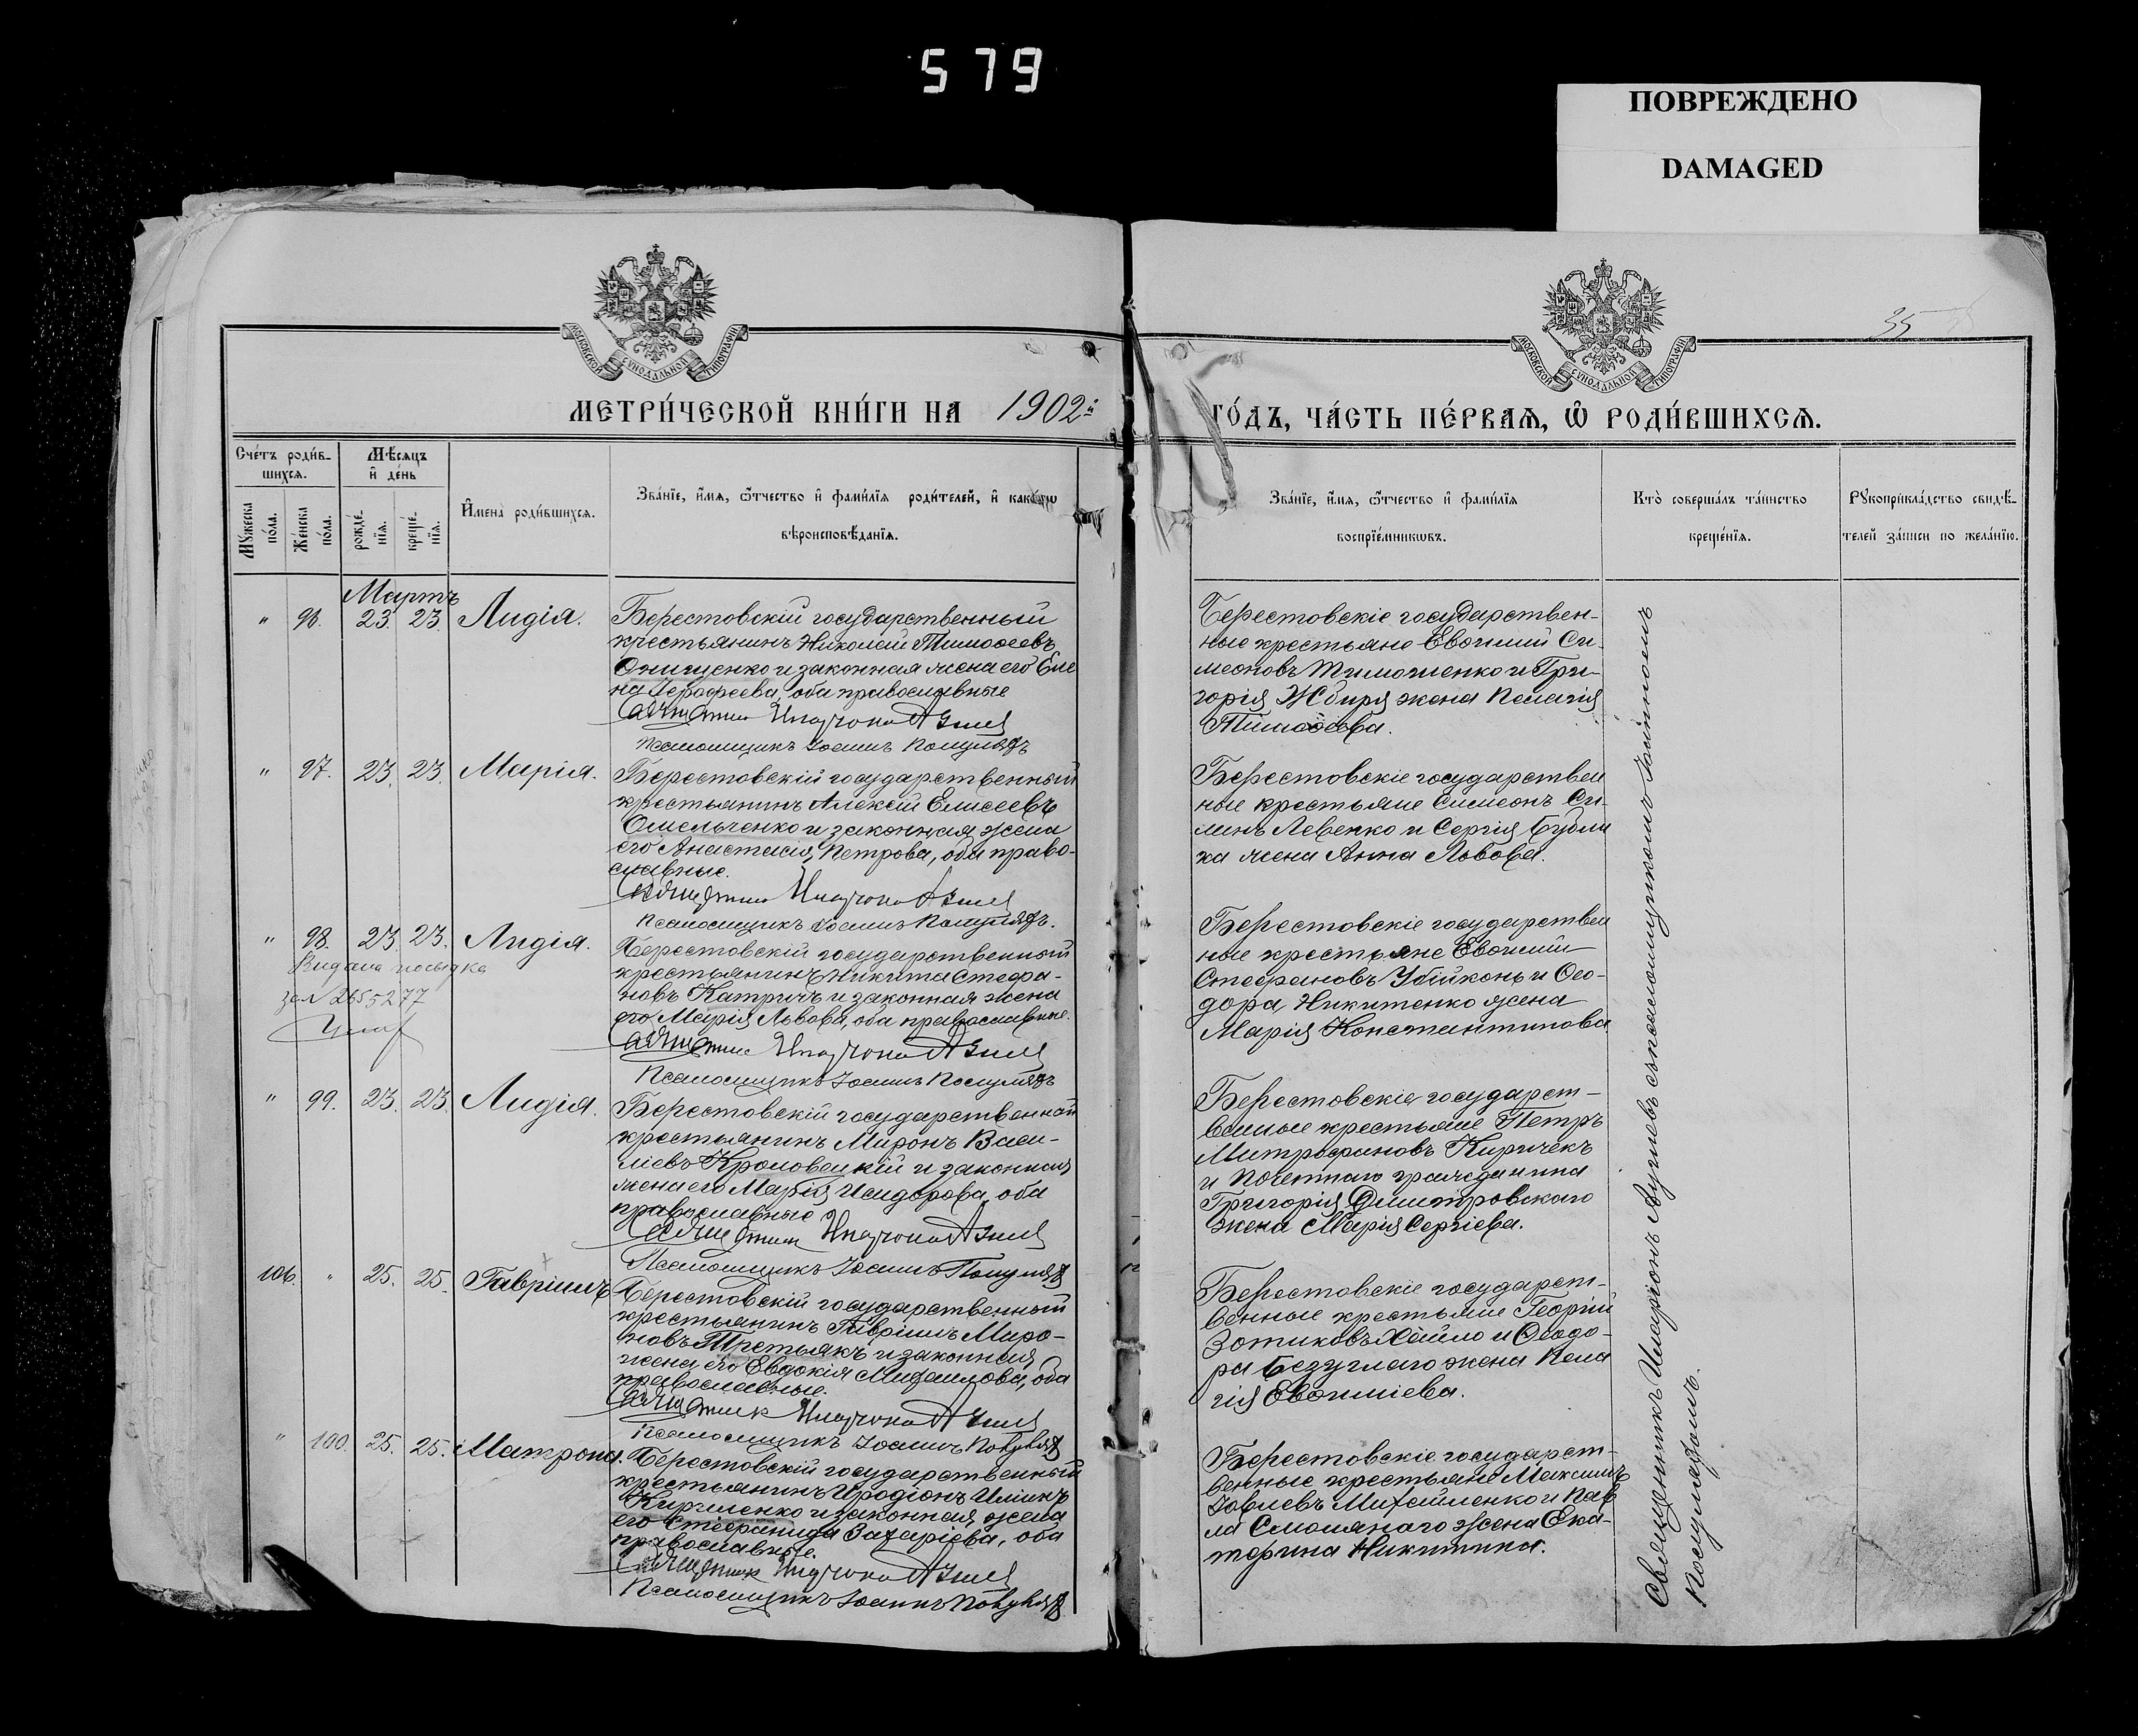 579
ПОВРЕЖДЕНО
DAMAGED
35
МОСКОВСКОЙ СѴНОДАЛЬНОЙ ТИПОГРАФІИ
МОСКОВСКОЙ СѴНОДАЛЬНОЙ ТИПОГРАФІИ
МЕТРИ́ЧЕСКОЙ КНИ́ГИ НА 1902й
ГО́ДЪ, ЧА́СТЬ ПЕ́РВАѦ, Ѡ҆ РОДИ́ВШИХСѦ.
Сче́тъ роди́в-
шихсѧ.
Мꙋжеска по́ла.
Же́нска по́ла.
Мѣ́сяцъ
и҆ де́нь
рожде́-
нїѧ.
креще́-
нїѧ.
И҆мена̀ роди́вшихсѧ.
Зва́нїе, и҆́мѧ, ѻ҆́тчество и҆ фами́лїѧ роди́телей, и҆ како́гѡ
вѣроисповѣ́данїѧ.
Зва́нїе, и҆́мѧ, ѻ҆́тчество и҆ фами́лїѧ
воспрїе́мникѡвъ.
Кто̀ соверша́лъ та́инство
креще́нїѧ.
Рꙋкоприкла́дство свидѣ́-
телей за́писи по жела́нїю.
Мартъ
" 96. 23. 23. Лидія.
Берестовскій государственный
крестьянинъ Николай Тимоѳеевъ
Онищенко и законная жена его Еле
на Іерофеева, оба православные
Священникъ Иларіонъ
Псаломщикъ Іоаннъ
Берестовскіе государствен-
ные крестьяне Евѳимій Си-
меоновъ Тимошенко и Гри-
горія Жбиря жена Пелагія
Тимоѳеева.
" 97. 23. 23. Марія.
Берестовскій государственный
крестьянинъ Алексій Елисеевъ
Омельченко и законная жена
его Анастасія Петрова, оба право-
славные.
Священникъ Иларіонъ
Псаломщикъ Іоаннъ
Берестовскіе государствен
ные крестьяне Симеонъ Си-
линъ Левенко и Сергія Бубли
ка жена Анна Львова.
" 98. 23. 23. Лидія.
Видана
за № 2655277
Берестовскій государственный
крестьянинъ Никита Стефа-
новъ Катричъ и законная жена
его Марія Львова, оба православные.
Священникъ Иларіонъ
Псаломщикъ Іоаннъ
Берестовскіе государствен
ные крестьяне Евѳимій
Стефановъ Убійконь и Ѳео-
дора Никитенко жена
Марія Константинова
" 99. 23. 23. Лидія.
Берестовскій государственный
крестьянинъ Миронъ Васи-
ліевъ Кроловецкій и законная
жена его Марія Исидорова, оба
православные
Священникъ Иларіонъ
Псаломщикъ Іоаннъ
Берестовскіе государст-
венные крестьяне Петръ
Митрофановъ Киричекъ
и почетнаго гражданина
Григорія Димитровскаго
жена Марія Сергіева.
106. " 25. 25. Гавріилъ
Берестовскій государственный
крестьянинъ Гавріилъ Миро-
новъ Третьякъ и законная
жена его Евдокія Михаилова, оба
православные.
Священникъ Иларіонъ
Псаломщикъ Іоаннъ
Берестовскіе государст-
венные крестьяне Георгій
Зотиковъ Хайло и Ѳеодо-
ра Безуглаго жена Пела
гія Евѳиміева.
" 100. 25. 25. Матрона.
Берестовскій государственный
крестьянинъ Иродіонъ Иліинъ
Кириленко и законная жена
его Стефанида Захаріева, оба
православные.
Священникъ Иларіонъ
Псаломщикъ Іоаннъ
Берестовскіе государст-
венные крестьяне Максимъ
Іовлевъ Михайленко и Пав
ла Смолянаго жена Ека-
терина Никитина.
Священникъ Иларіонъ съ псаломщикомъ Іоанномъ